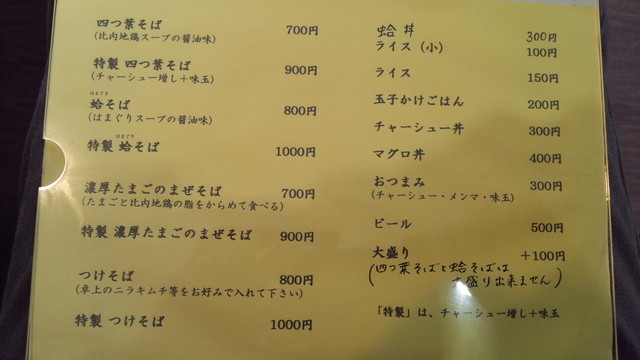 四つ葉そば 700円
(比内地鶏スープの醤油味)
特製 四つ葉そば 900円
(チャーシュー増し+味玉)
はまぐり
蛤そば 800円
(はまぐりスープの醤油味)
はまぐり
特製 蛤そば 1000円
濃厚たまごのまぜそば 700円
(たまごと比内地鶏の脂をからめて食べる)
特製 濃厚たまごのまぜそば 900円
つけそば 800円
(卓上のニラキムチ等をお好みで入れて下さい)
特製 つけそば 1000円
蛤丼 300円
ライス(小) 100円
ライス 150円
玉子かけごはん 200円
チャーシュー丼 300円
マグロ丼 400円
おつまみ 300円
(チャーシュー・メンマ・味玉)
ビール 500円
大盛り +100円
(四つ葉そばと蛤そばは
大盛り出来ません)
「特製」は、チャーシュー増し+味玉